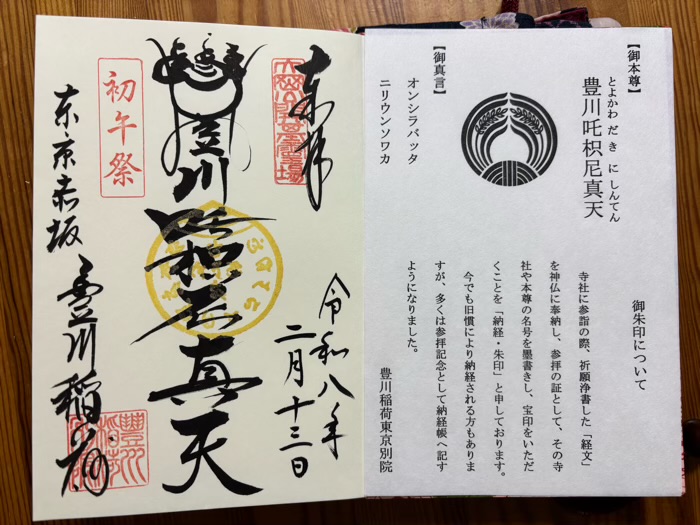 御朱印について
寺社に参詣の際、祈願浄書した「経文」
を神仏に奉納し、参拝の証として、その寺
社や本尊の名号を墨書きし、宝印をいただ
くことを「納経・朱印」と申しております。
今でも旧慣により納経される方もありま
すが、多くは参拝記念として納経帳へ記す
ようになりました。
豊川稲荷東京別院
【御本尊】
とよかわ だ き に しんてん
豊川吒枳尼真天
【御真言】
オンシラバッタ
ニリウンソワカ
奉拝
令和八年
二月十三日
豊川吒枳尼真天
初午祭
東京赤坂
豊川稲荷